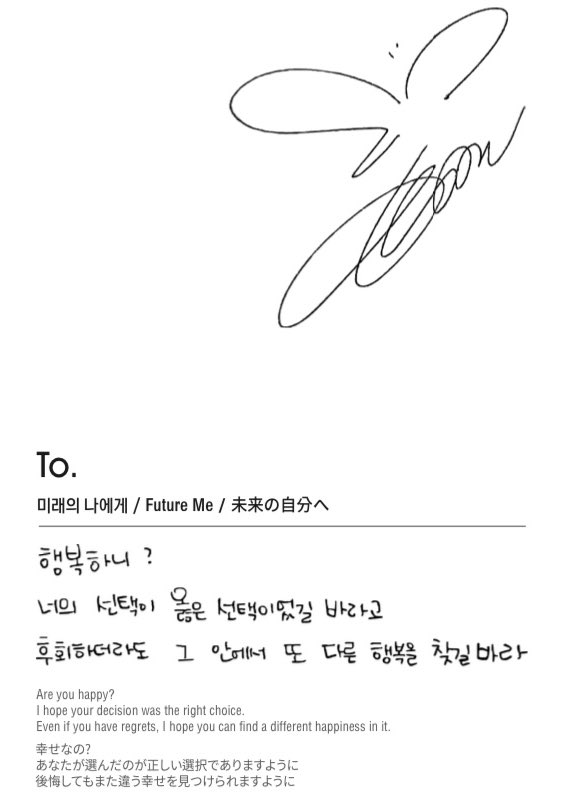 To.
미래의 나에게 / Future Me / 未来の自分へ
행복하니?
너의 선택이 옳은 선택이었길 바라고
후회하더라도 그 안에서 또 다른 행복을 찾길 바라
Are you happy?
I hope your decision was the right choice.
Even if you have regrets, I hope you can find a different happiness in it.
幸せなの?
あなたが選んだのが正しい選択でありますように
後悔してもまた違う幸せを見つけられますように